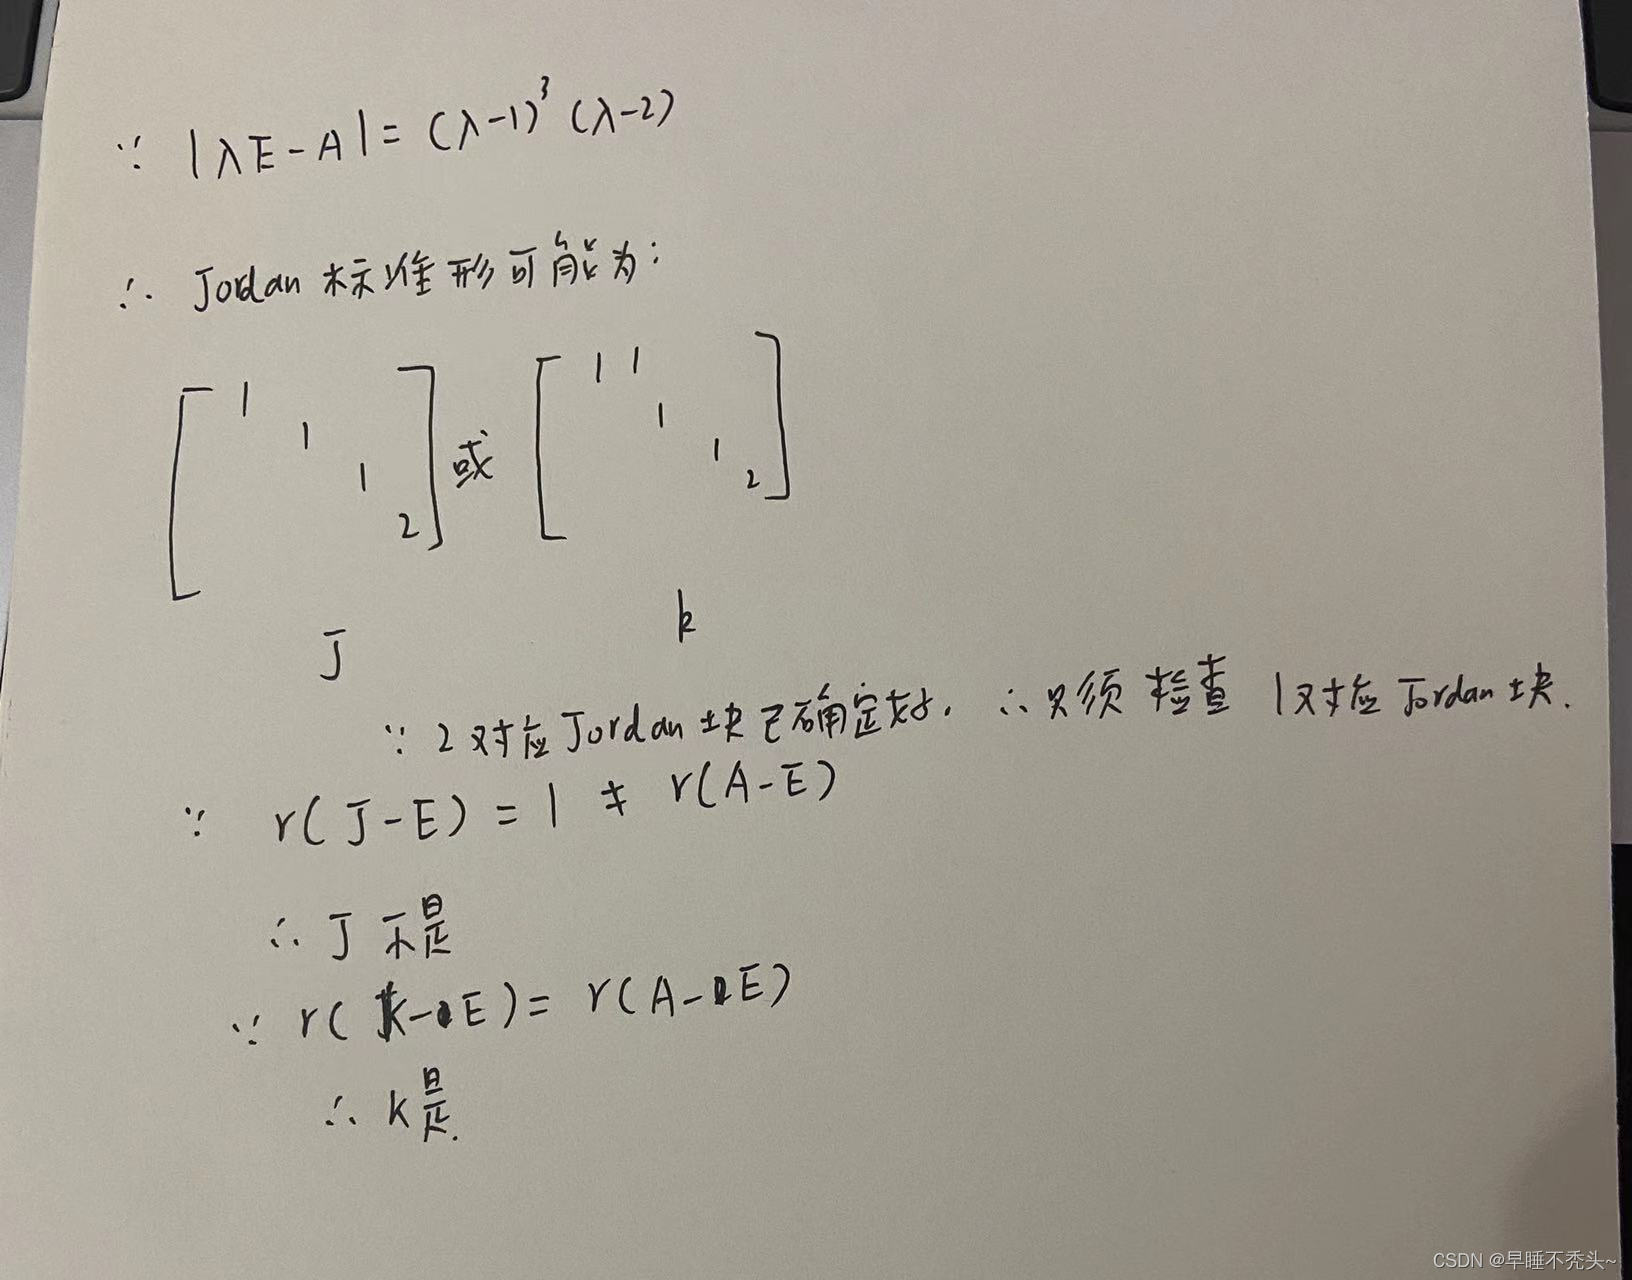 ∵ |λE-A| = (λ-1)³(λ-2)
∴ Jordan 标准形可能为：
[ 1
1
1
2 ] 或 [ 1 1
1
1
2 ]
J k
∵ 2对应Jordan块已确定好. ∴只须检查 1对应Jordan块.
∵ r(J-E) = 1 ≠ r(A-E)
∴ J 不是
∵ r(K-E) = r(A-E)
∴ k是.
CSDN @早睡不秃头~